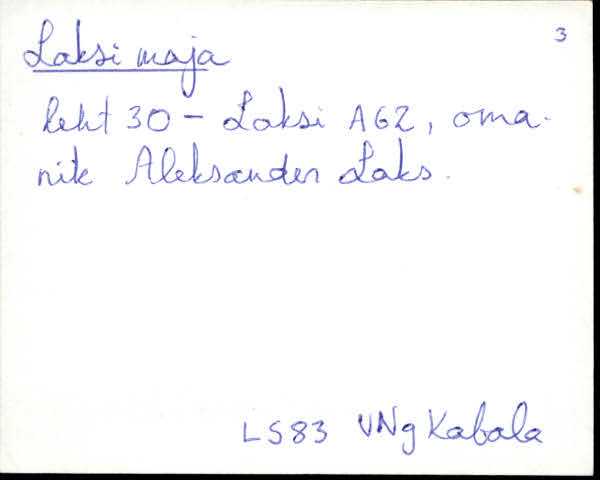 3
Laksi maja
leht 30 - Laksi A62, oma-
nik Aleksander Laks.
LS83 VNg Kabala